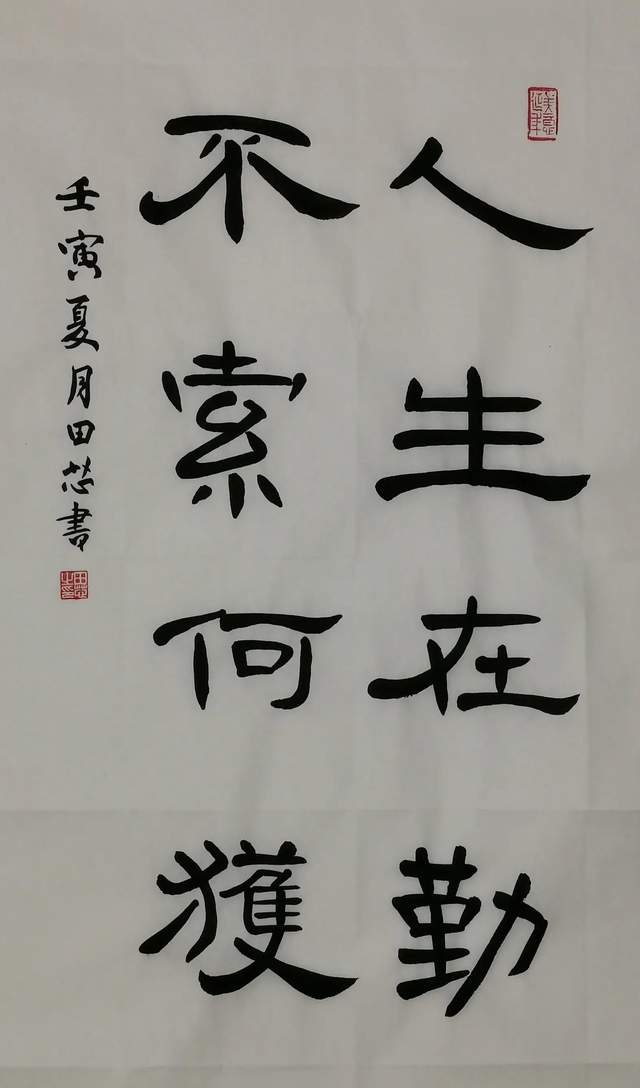 人生在勤
不索何獲
壬寅夏月田芯書